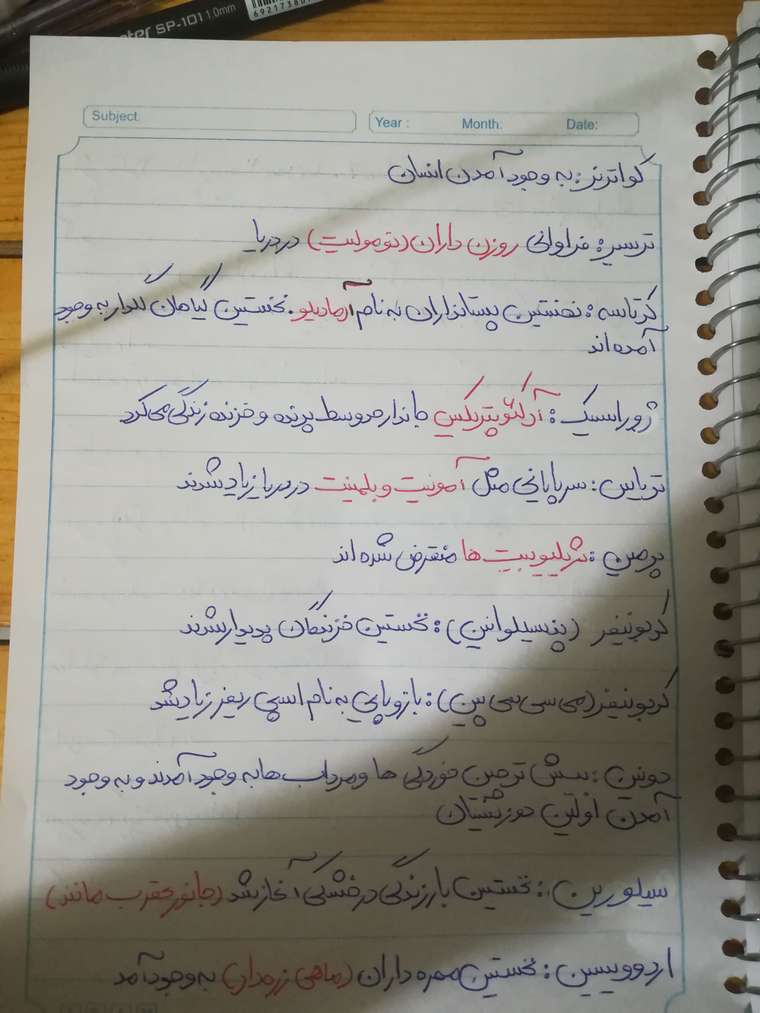 ter SP-101 1.0mm
Subject:
Year : Month: Date:
کواترنر: به وجود آمدن انسان
ترسیر: فراوانی روزن داران (نومولیت) در دریا
کرتاسه: نخستین پستانداران به نام آرمادیلو. نخستین گیاهان گلدار به وجود
آمده اند
ژوراسیک: آرکئوپتریکس جاندار حد وسط پرنده و خزنده زندگی می کرد
تریاس: سرپایانی مثل آمونیت و بلمنیت در دریا زیاد شدند
پرمین: تریلیوبیت ها منقرض شده اند
کربونیفر (پنسیلوانین): نخستین خزندگان پدیدار شدند
کربونیفر (می سی سی پین): بازوپایی به نام اسپی ریفر زیاد شد
دونین: بیش ترین خوردگی ها و مرداب ها به وجود آمدند و به وجود
آمدن اولین دوزیستیان
سیلورین: نخستین بار زندگی در خشکی آغاز شد (جانور عقرب مانند)
اردوویسین: نخستین مهره داران (ماهی زره دار) به وجود آمد